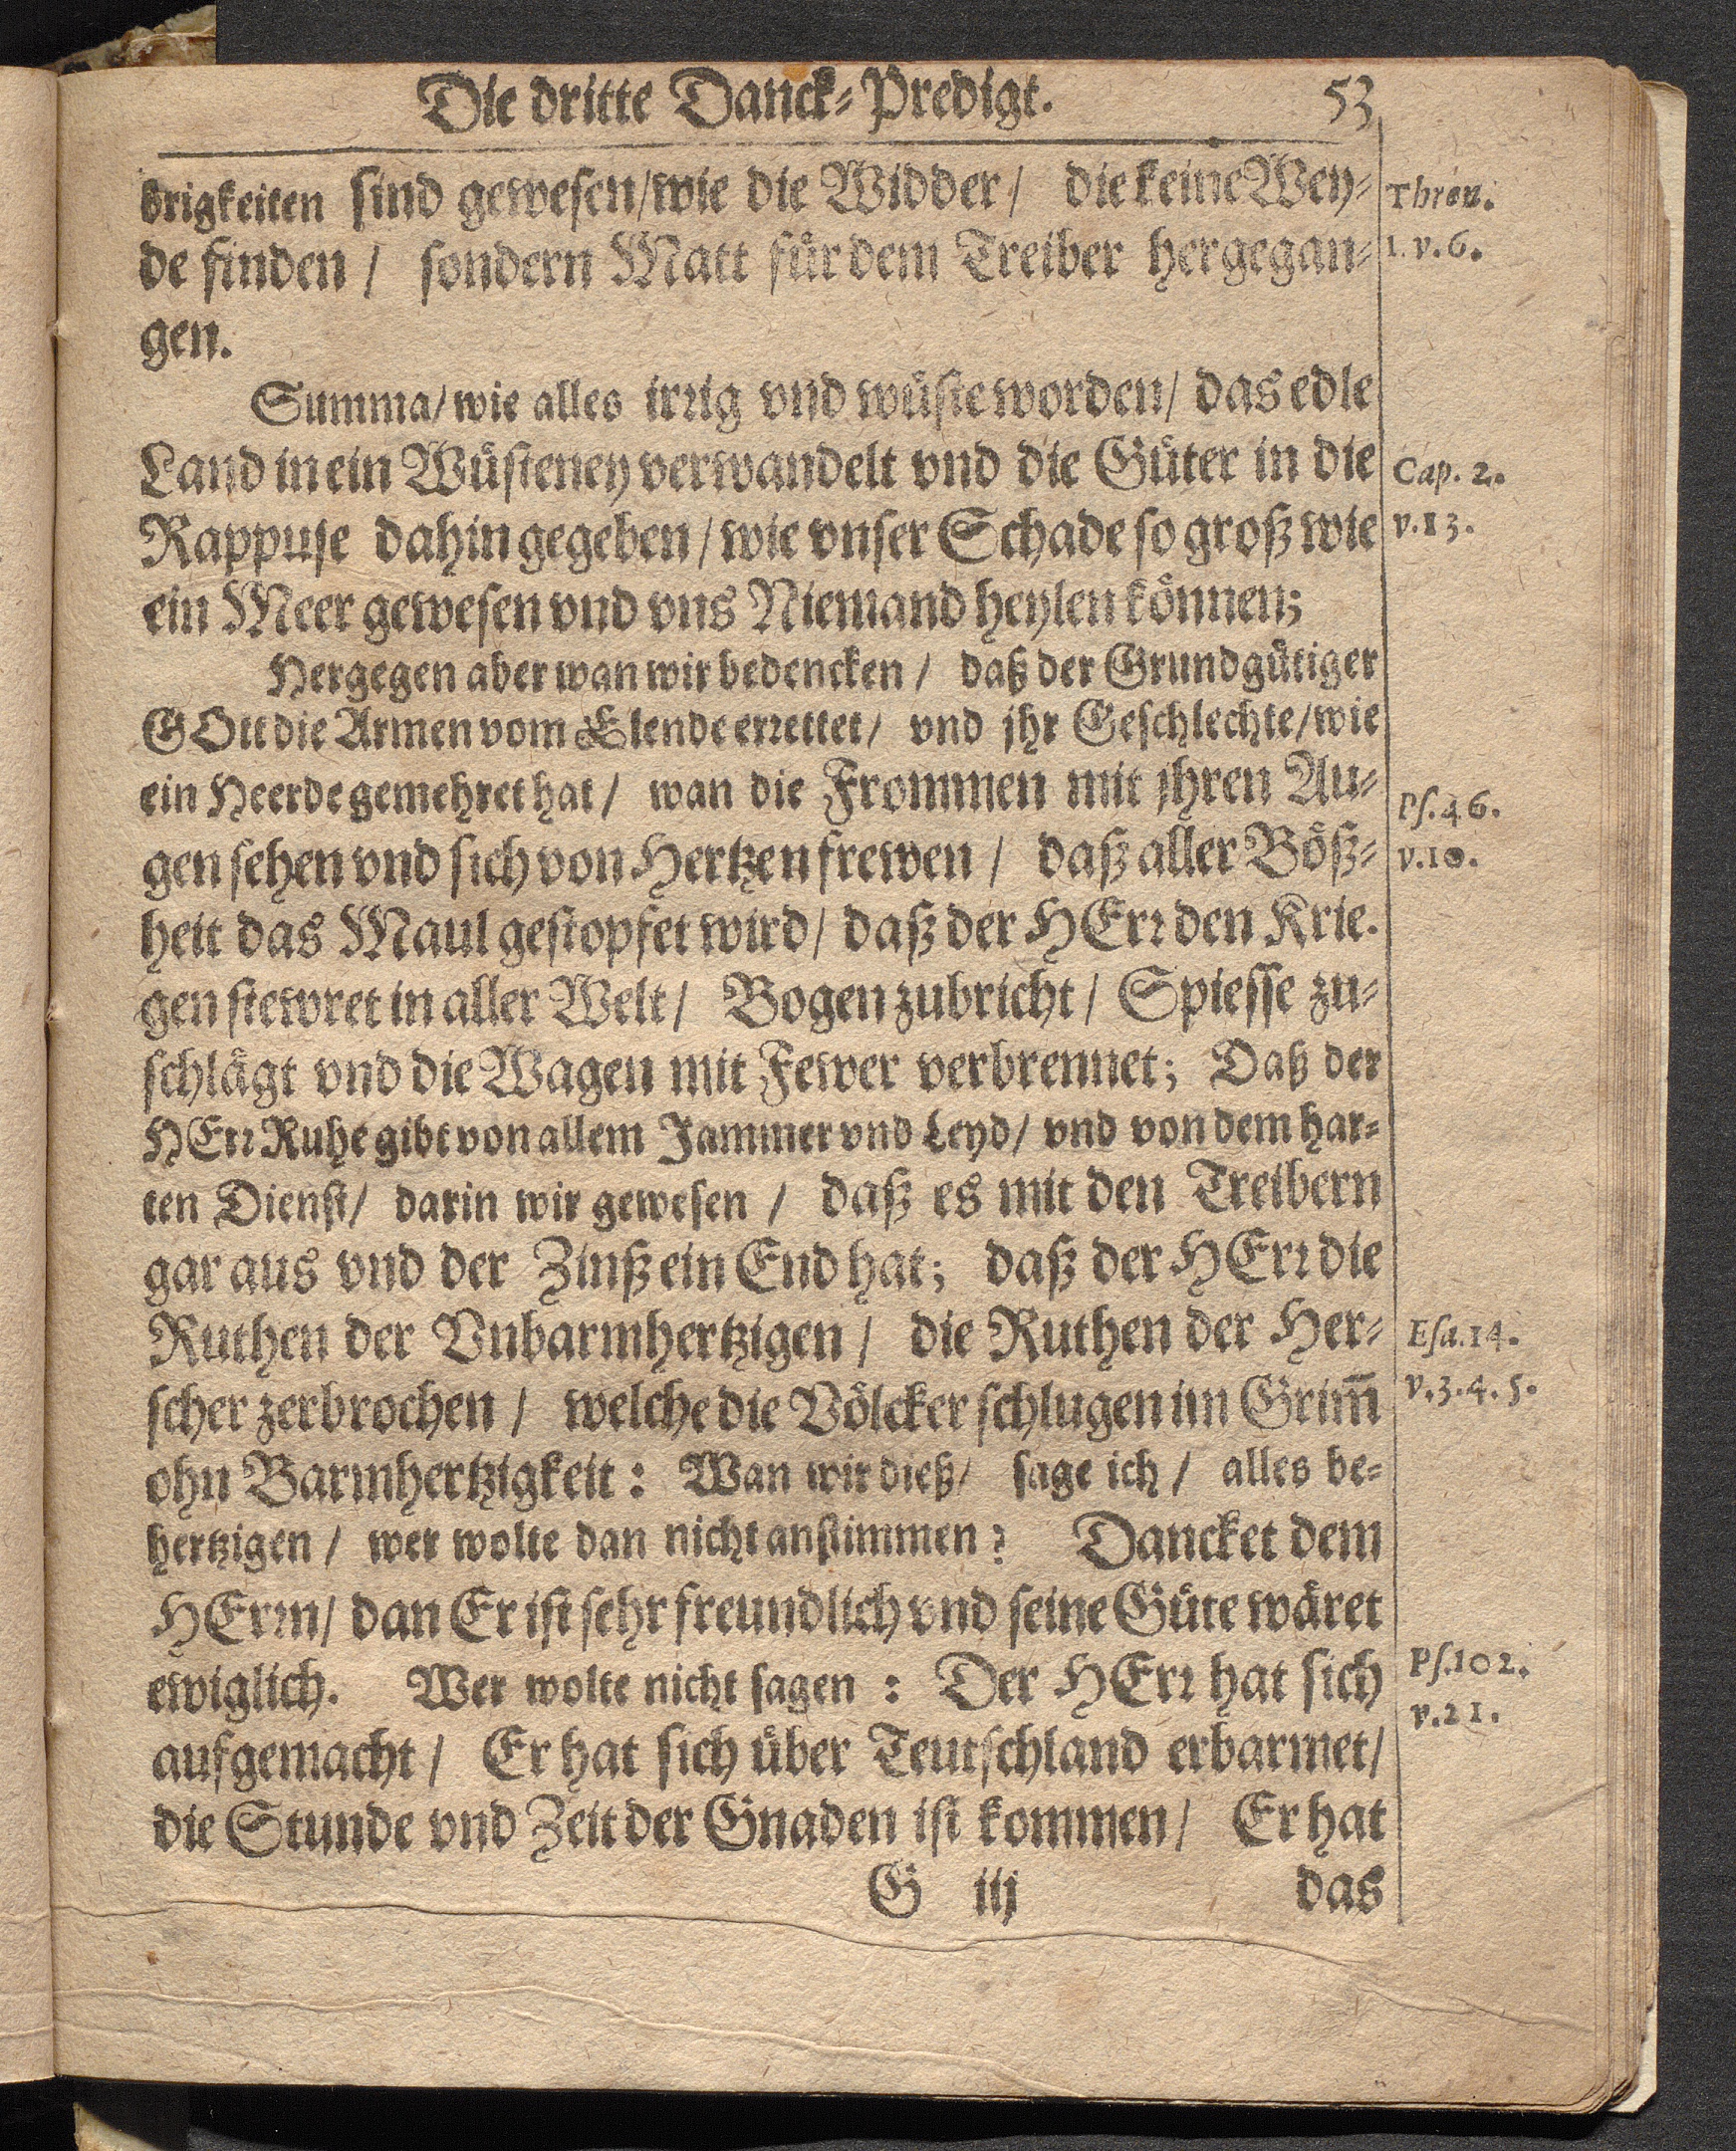 Die dritte Danck-Predigt. 53
brigkeiten sind gewesen/wie die Widder/ die keine Wey-
Thren.
de finden/ sondern Matt für dem Treiber hergegan-
1. v. 6.
gen.
Summa/ wie alles irrig vnd wüste worden/ das edle
Land in ein Wüsteney verwandelt vnd die Güter in die
Cap. 2.
Rappuse dahin gegeben/ wie vnser Schade so groß wie
v. 13.
ein Meer gewesen vnd vns Niemand heylen können;
Hergegen aber wan wir bedencken/ daß der Grundgütiger
GOtt die Armen vom Elende errettet/ vnd jhr Geschlechte/wie
ein Heerde gemehret hat/ wan die Frommen mit jhren Au-
Ps. 46.
gen sehen vnd sich von Hertzen frewen/ daß aller Böß-
v. 10.
heit das Maul gestopfet wird/ daß der HErr den Krie.
gen stewret in aller Welt/ Bogen zubricht/ Spiesse zu-
schlägt vnd die Wagen mit Fewer verbrennet; Daß der
HErr Ruhe gibt von allem Jammer vnd Leyd/ vnd von dem har-
ten Dienst/ darin wir gewesen/ daß es mit den Treibern
gar aus vnd der Zinß ein End hat; daß der HErr die
Ruthen der Vnbarmhertzigen/ die Ruthen der Her-
Esa. 14.
scher zerbrochen/ welche die Völcker schlugen im Grim̅
v. 3. 4. 5.
ohn Barmhertzigkeit: Wan wir dieß/ sage ich/ alles be-
hertzigen/ wer wolte dan nicht anstimmen? Dancket dem
HErrn/ dan Er ist sehr freundlich vnd seine Güte wäret
ewiglich. Wer wolte nicht sagen: Der HErr hat sich
Ps. 102.
v. 21.
aufgemacht/ Er hat sich über Teutschland erbarmet/
die Stunde vnd Zeit der Gnaden ist kommen/ Er hat
G iij das